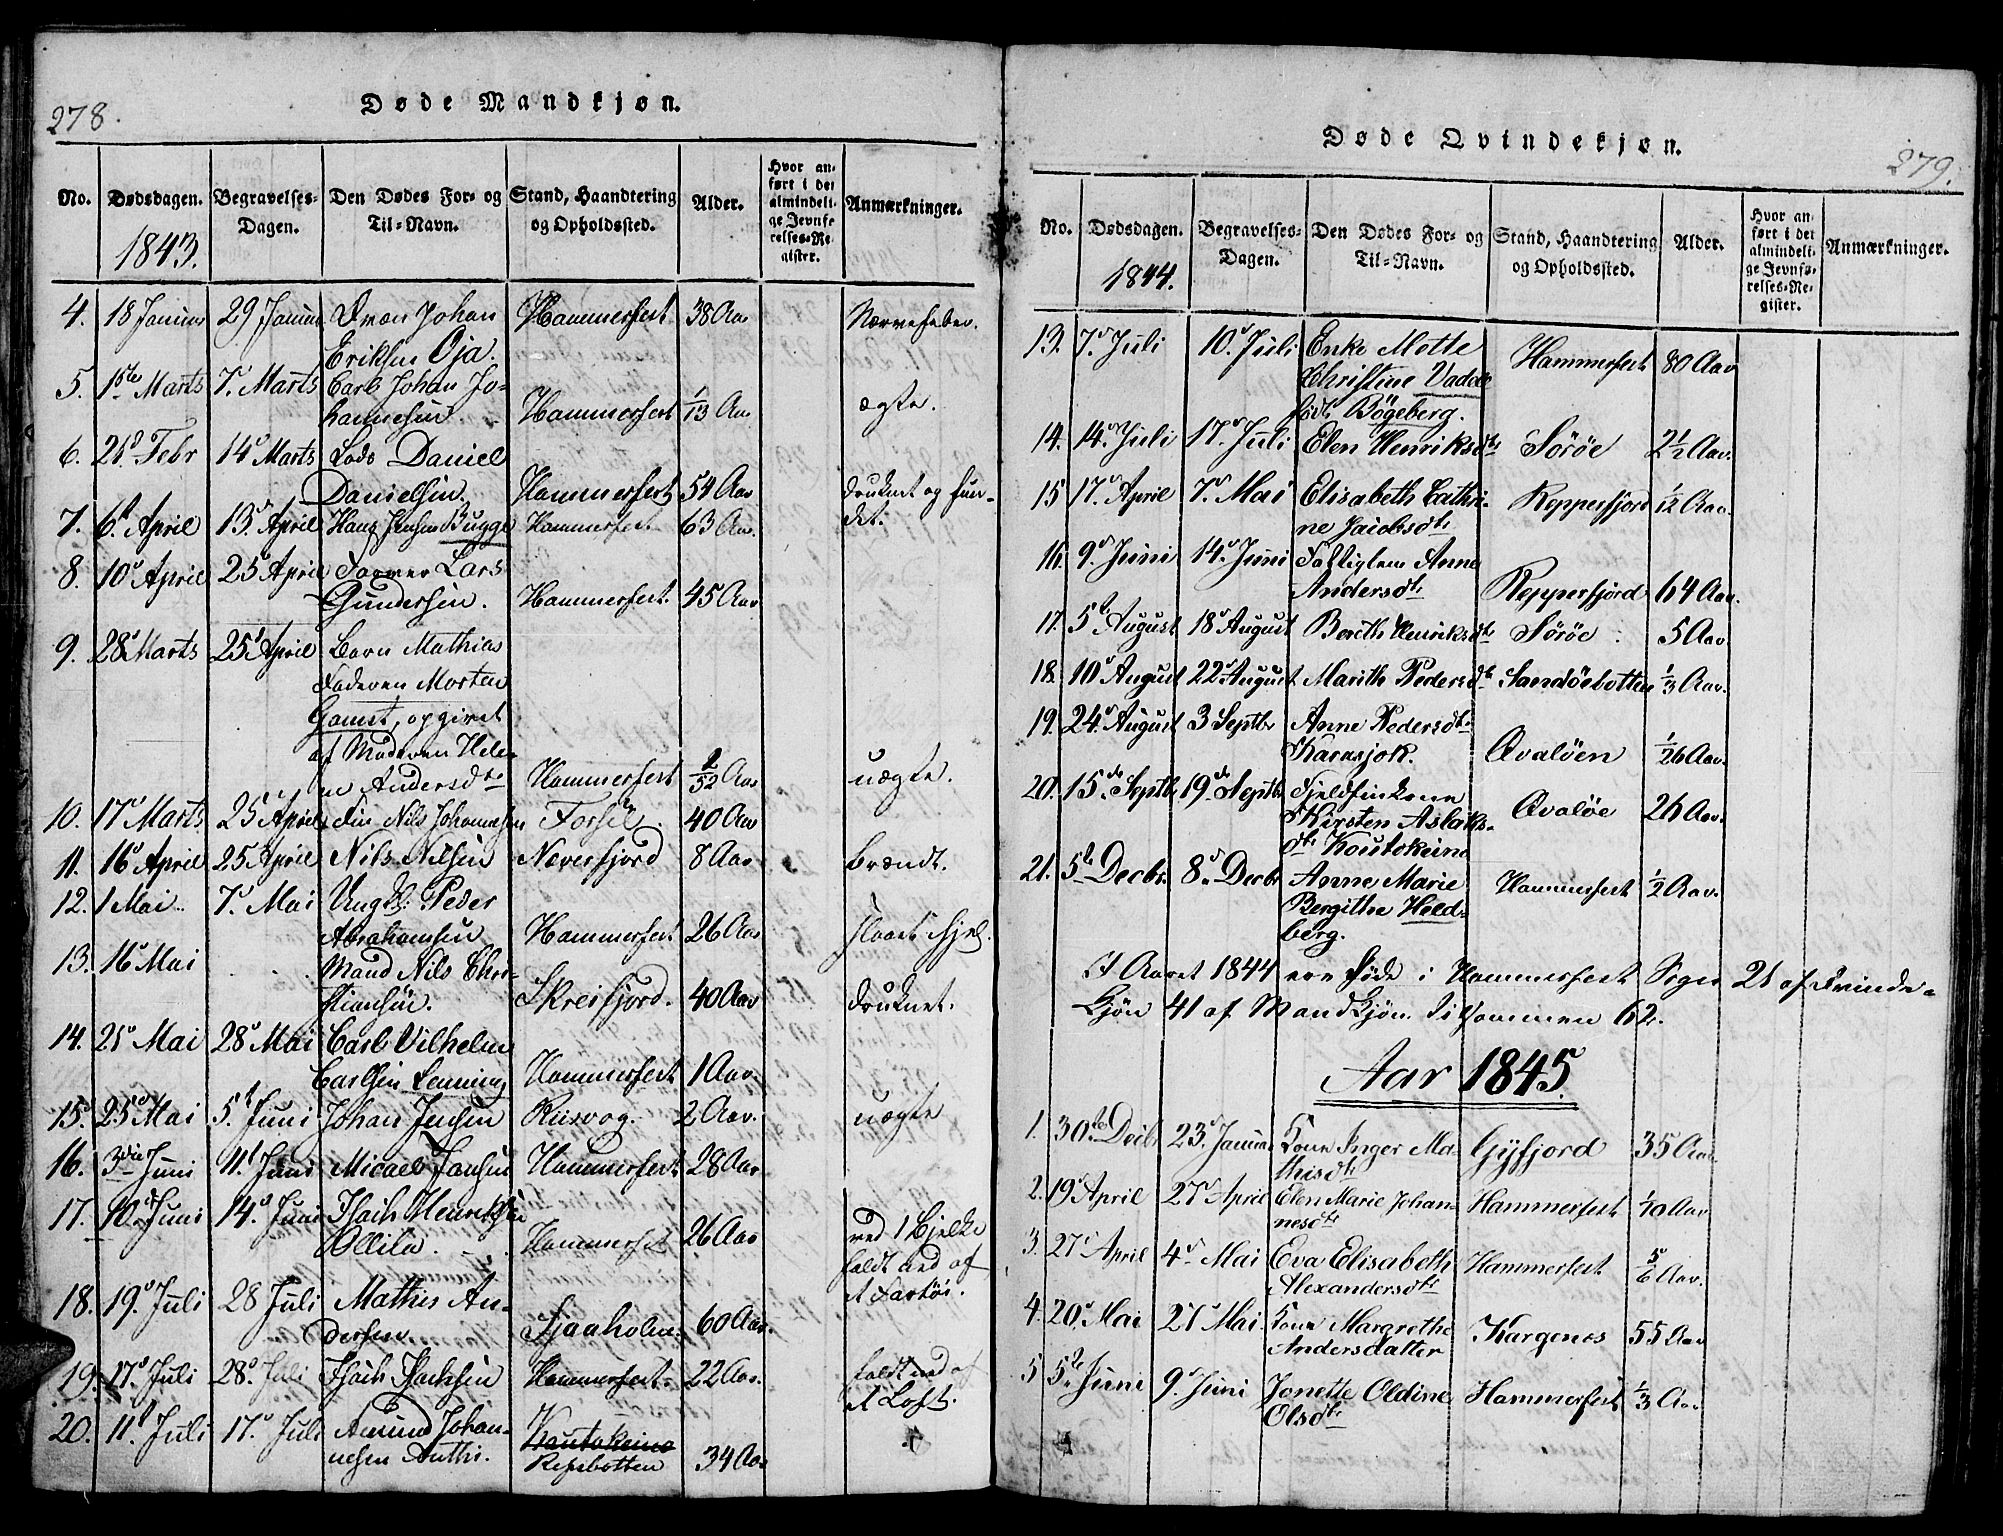 278.
Døde Mandkjøn.
No. Dødsdagen. Begravelses-Dagen. Den Dødes For- og Til-Navn. Stand, Haandtering og Opholdssted. Alder. Hvor anført i det almindelige Jevnførelses-Register. Anmærkninger.
1843.
4. 18 Januar 29 Januar Svæn Johan Hammerfest 38 Aar Nervefeber.
Eriksen Oja.
5. 1ste Marts 7d Marts Carl Johan Jo-
hannesen Hammerfest 1/13 Aar ægte.
6. 21d Febr 14d Marts Lods Daniel
Danielsen. Hammerfest 54 Aar druknet og fun-
det.
7. 6t April 13d April Hans Jensen Bugge Hammerfest 63 Aar.
8. 10d April 25d April Farver Lars
Gundersen. Hammerfest. 45 Aar
9. 28d Marts 25d April Barn Mathias
Faderen Morten
Gamst, opgivet
af Moderen Hele-
ne Andersdtr Hammerfest 2/52 Aar uægte.
10. 17d Marts 25d April Fin Nils Johannesen Forsöl. 40 Aar
11. 16d April 25 April Nils Nilsen Næverfjord 8 Aar brændt.
12. 1 Mai 7d Mai Ungkl. Peder
Abrahamsen Hammerfest 26 Aar slaaet ihjel.
13. 16d Mai Mand Nils Chri-
stiansen. Skreifjord. 40 Aar druknet.
14. 21d Mai 28d Mai Carl Vilhelm
Carlsen Lenning Hammerfest 1 Aar.
15. 25d Mai 5t Juni Johan Jensen Rusvog. 2 Aar. uægte
16. 3die Juni 11t Juni Micael Jansen Hammerfest 28 Aar
17. 10d Juni 14d Juni Isach Henriksen
Ollila. Hammerfest 26 Aar ved 1 Bjelke
faldt ned af
et Fartöi.
18. 19d Juli 28 Juli Mathis An-
dersen. Sjaaholm. 60 Aar.
19. 17d Juli 28d Juli Isach Isachsen Hammerfest 22 Aar. faldt ned af
et Loft.
20. 11t Juli 17d Juli Amund Johan-
nesen Anthi. Kautokeino
Repsbotten 34 Aar
279.
Døde Qvindekjøn.
No. Dødsdagen. Begravelses-Dagen. Den Dødes For- og Til-Navn. Stand, Haandtering og Opholdssted. Alder. Hvor anført i det almindelige Jevnførelses-Register. Anmærkninger.
1844.
13. 7d Juli 10d Juli Enke Mette
Christine
födt Bögeberg. Hammerfest 80 Aar
14. 14d Juli 17d Juli Elen Henriksdtr Söröe 2 1/2 Aar.
15 17d April 7d Mai Elisabeth Cathri-
ne Jacobsdtr Repperfjord 1/12 Aar.
16. 9d Juni 14d Juni Fattiglem Anne
Andersdtr Repperfjord 64 Aar.
17. 5te August 18d August Bereth Henriksdtr Söröe 5 Aar.
18. 10d August 22d August Marith Pedersdtr Sandöebotten 1/3 Aar.
19. 24d August 3 Septbr Anne Pedersdtr
Karasjok. Qvalöen 1/26 Aar.
20. 15de Septbr 19de Septbr Fjeldfinkone
Kirsten Aslaks-
dtr Koutokeino Qvalöe 26 Aar.
21. 5te Decbr. 8d Decbr Anne Marie
Bergithe Held-
berg. Hammerfest 1/2 Aar.
I Aaret 1844 ere Föde i Hammerfest Sogn 21 af Qvinde-
Kjön 41 af MandKjön. Tilsammen 62.
Aar 1845.
1. 30te Decbr 23d Januar Kone Inger Ma-
thisdtr Gyfjord 35 Aar.
2. 19d April 27d April Elen Marie Johan-
nesdtr Hammerfest 1/10 Aar
3. 27d April 4d Mai Eva Elisabeth
Alexandersdtr Hammerfest 5/6 Aar.
4. 20d Mai 27d Mai Kone Margrethe
Andersdatter Kargenes 55 Aar
5 5te Juni 9d Juni Jonette Oldine
Olsdtr Hammerfest 1/3 Aar.